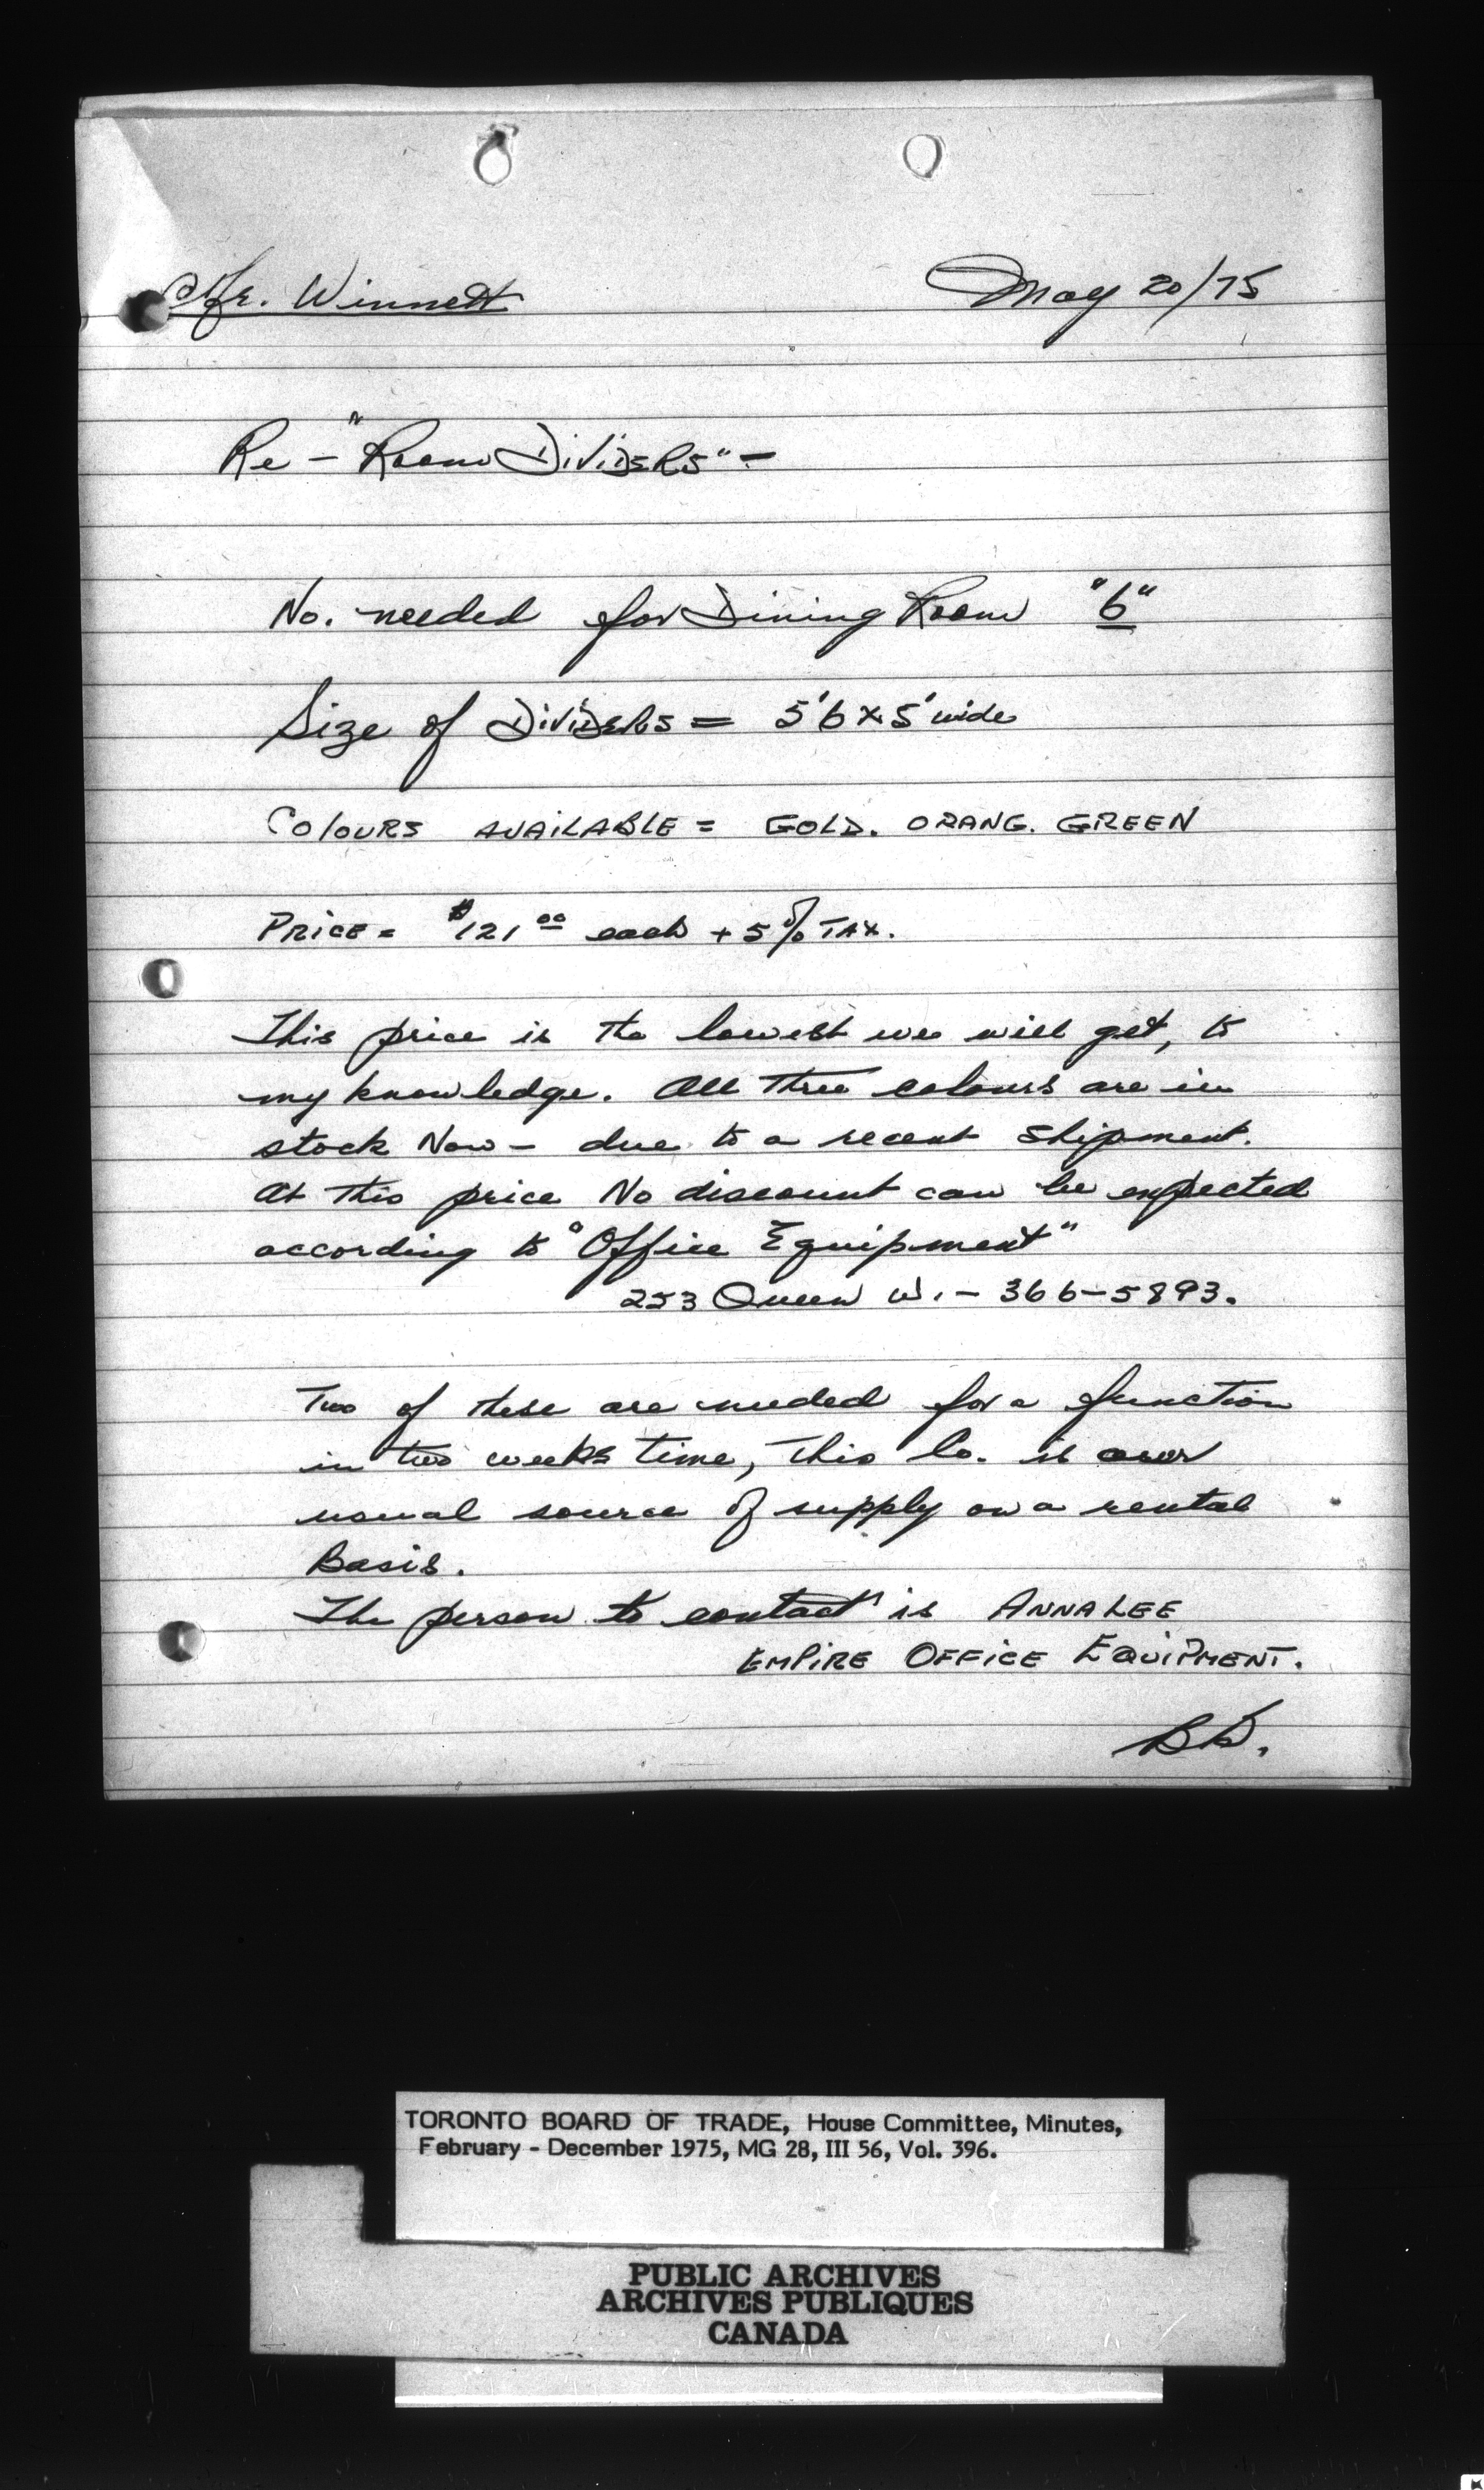 Mr. Winnett
May 20/75
Re - "Room Dividers" -
No. needed for Dining Room "6"
Size of Dividers = 5'6 x 5' wide
Colours AVAILABLE = GOLD. ORANG. GREEN
PRICE = $121 00 each + 5% TAX.
This price is the lowest we will get, to
my knowledge. All three colours are in
stock Now - due to a recent shipment.
At this price No discount can be expected
according to "Office Equipment"
253 Queen W. - 366-5893.
Two of these are needed for a function
in two weeks time, This Co. is our
usual source of supply on a rental
Basis.
The person to contact is ANNALEE
EMPIRE OFFICE EQUIPMENT.
TORONTO BOARD OF TRADE, House Committee, Minutes,
February - December 1975, MG 28, III 56, Vol. 396.
PUBLIC ARCHIVES
ARCHIVES PUBLIQUES
CANADA